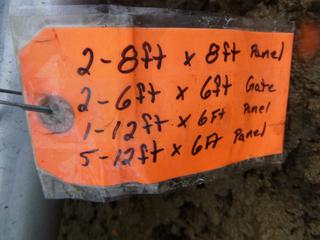 2-8ft x 8ft Panel
2-6ft x 6ft Gate
1-12ft x 6Ft Panel
5-12ft x 6Ft Panel